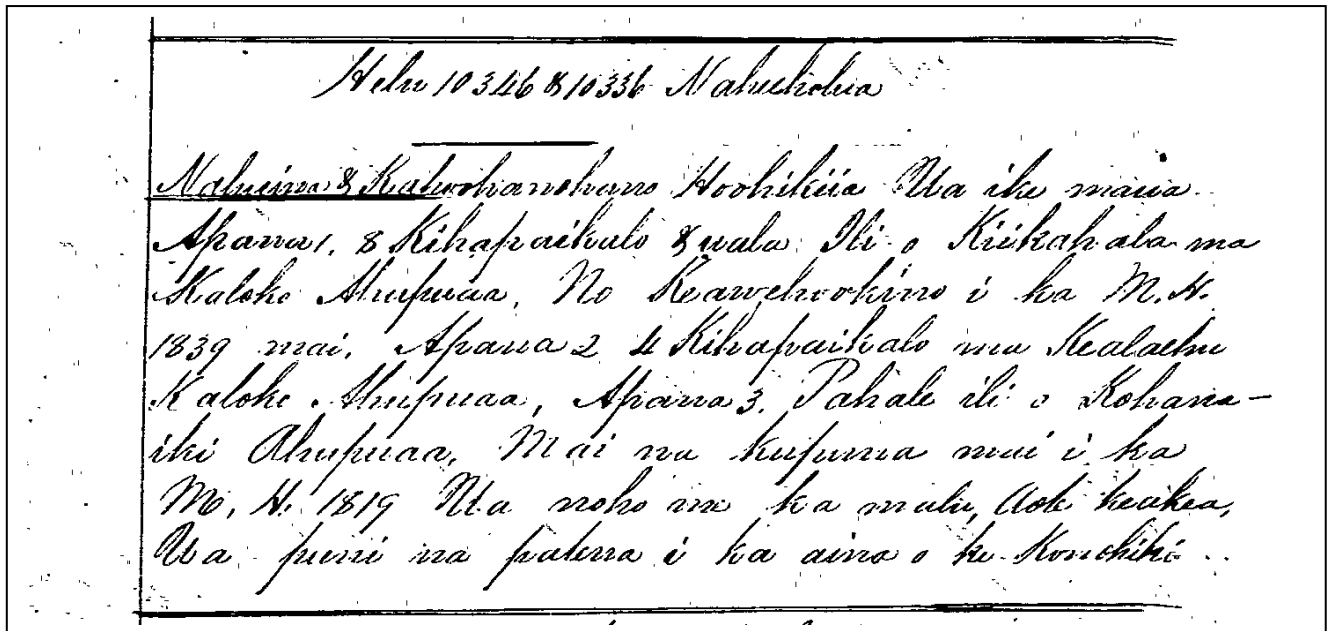 Helu 10346 & 10336 Nahueholua
Nahuina & Kalwohanohano Hoohikiia Ua ike maua
Apana 1. 8 Kihapaikalo & uala Ili o Kiikahala ma
Kaloko Ahupuaa, No Keawehookino i ka M. H.
1839 mai. Apana 2 4 Kihapaikalo ma Kealaehu
Kaloko Ahupuaa, Apana 3. Pahale ili o Kohana-
iki Ahupuaa, Mai na kupuna mai i ka
M. H. 1819 Ua noho me ka malu, Aole keakea,
Ua puni na palena i ka aina o ke Konohiki